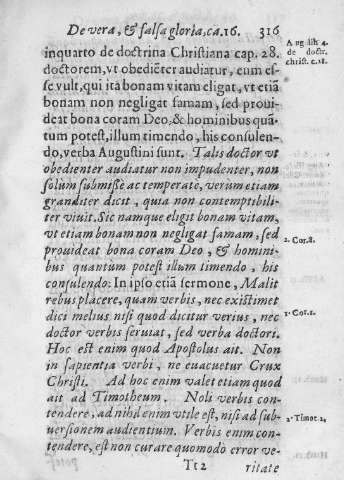 De vera, & falsa gloria, ca.16. 316
inquarto de doctrina Christiana cap. 28.
Aug. lib 4.
de doctr.
christ. c.28.
doctorem, vt obediẽter audiatur, eum es-
se vult, qui ita bonam vitam eligat, vt etiã
bonam non negligat famam, sed proui-
deat bona coram Deo, & hominibus quã-
tum potest, illum timendo, his consulen-
do, verba Augustini sunt. Talis doctor vt
obedienter audiatur non impudenter, non
solum submisse ac temperate, verum etiam
granditer dicit, quia non contemptibili-
ter viuit. Sic namque eligit bonam vitam,
vt etiam bonam non negligat famam, sed
prouideat bona coram Deo, & homini-
2. Cor.8.
bus quantum potest illum timendo, his
consulendo: In ipso etiã sermone, Malit
rebus placere, quam verbis, nec existimet
dici melius nisi quod dicitur verius, nec
1. Cor.1.
doctor verbis seruiat, sed verba doctori.
Hoc est enim quod Apostolus ait. Non
in sapientia verbi, ne euacuetur Crux
Christi. Ad hoc enim valet etiam quod
ait ad Timotheum. Noli verbis con-
tendere, ad nihil enim vtile est, nisi ad sub-
2. Timot. 2.
uersionem audientium. Verbis enim con-
tendere, est non curare quomodo error ve-
Tt 2 ritate